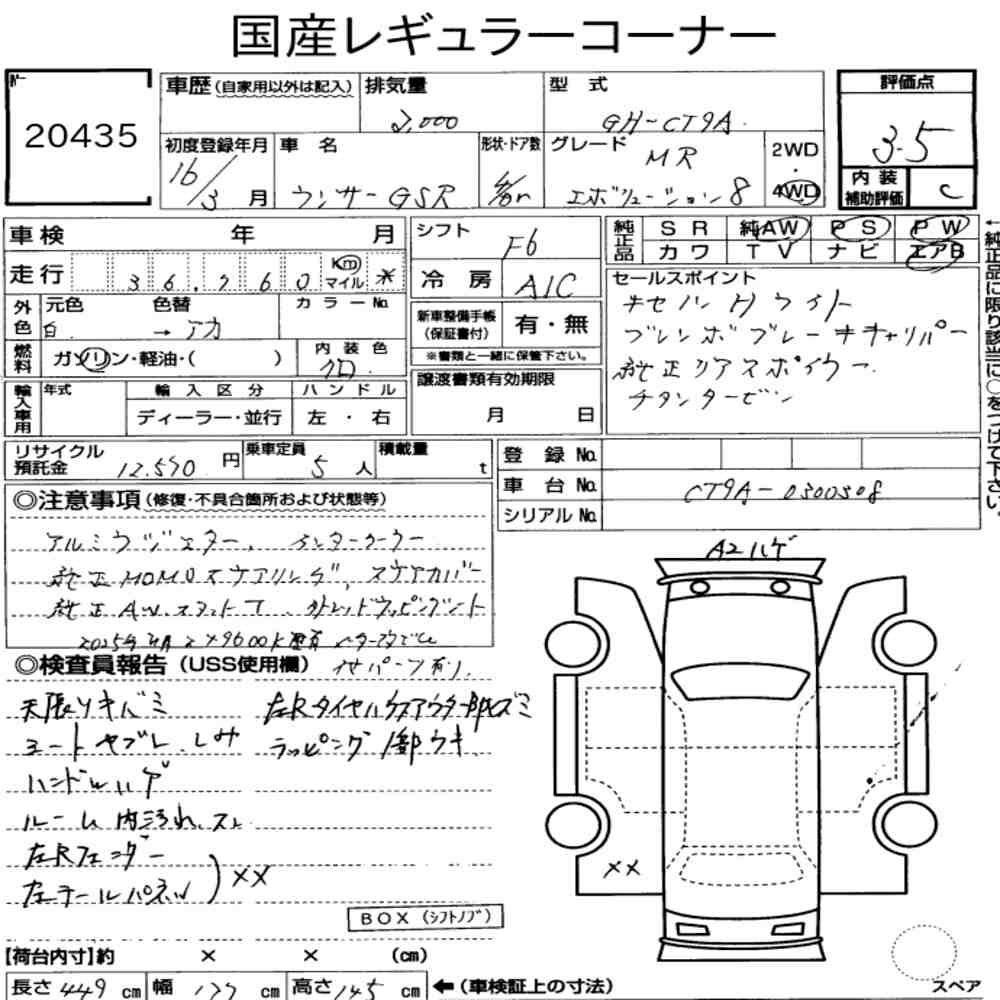 国産レギュラーコーナー
20435
車歴 (自家用以外は記入)
排気量 2,000
型式 GH-CT9A
評価点 3.5
初度登録年月 16/3月
車名 ランサーGSR
形状・ドア数
グレード MR エボリューション8
2WD・4WD
内装補助評価 C
車検 年 月
走行 36,760 Km マイル
シフト F6
冷房 A/C
純正品 SR 純AW PS PW
カワ TV ナビ エアB
外色 元色 白 色替 → アカ カラーNo.
新車整備手帳(保証書付) 有・無
※書類と一緒に保管下さい。
セールスポイント
キセノンHライト
ブレンボブレーキキャリパー
純正リアスポイラー
チタンタービン
←純正品に限り該当に○をつけて下さい。
燃料 ガソリン・軽油・( )
内装色 クロ
譲渡書類有効期限 月 日
輸入車用 年式 輸入区分 ディーラー・並行 ハンドル 左・右
リサイクル預託金 12,590円
乗車定員 5人
積載量 t
登録No.
車台No. CT9A-0300508
シリアルNo.
◎注意事項(修復・不具合箇所および状態等)
アルミラジエター、インタークーラー
純正MOMOステアリング、ステアカバー
純正AW
◎検査員報告(USS使用欄) 社パーツ有り
天張りキバミ
シートヤブレ、シミ
ハンドルハゲ
ルーム内汚れ、スレ
左Rフェンダー
左テールパネル
) XX
左Rタイヤハウスアウター部ユズミ
ラッピング1部ウキ
BOX(シフトノブ)
A2 ハゲ
XX
スペア
[荷台内寸]約 × × (cm)
長さ 449 cm 幅 177 cm 高さ 145 cm ←(車検証上の寸法)